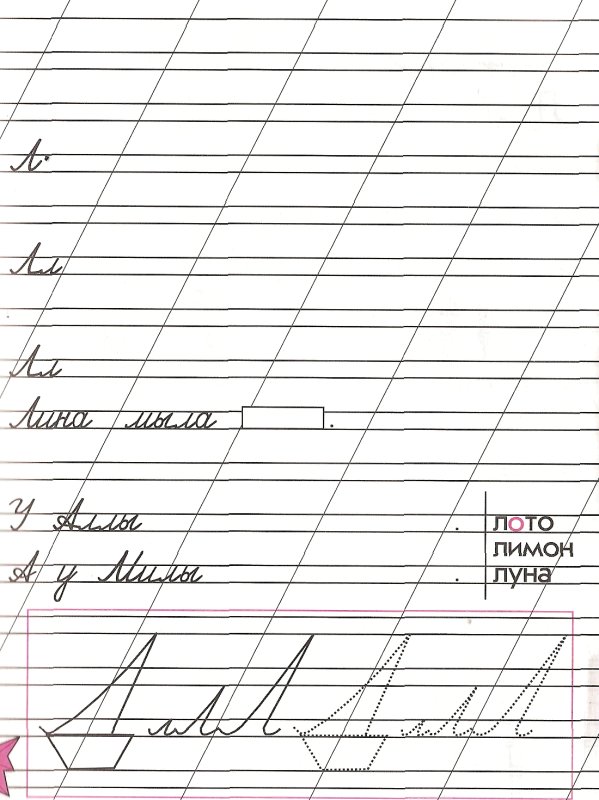 Л
Лл
Лл
Лина мыла .
У Аллы .
А у Милы .
лото
лимон
луна